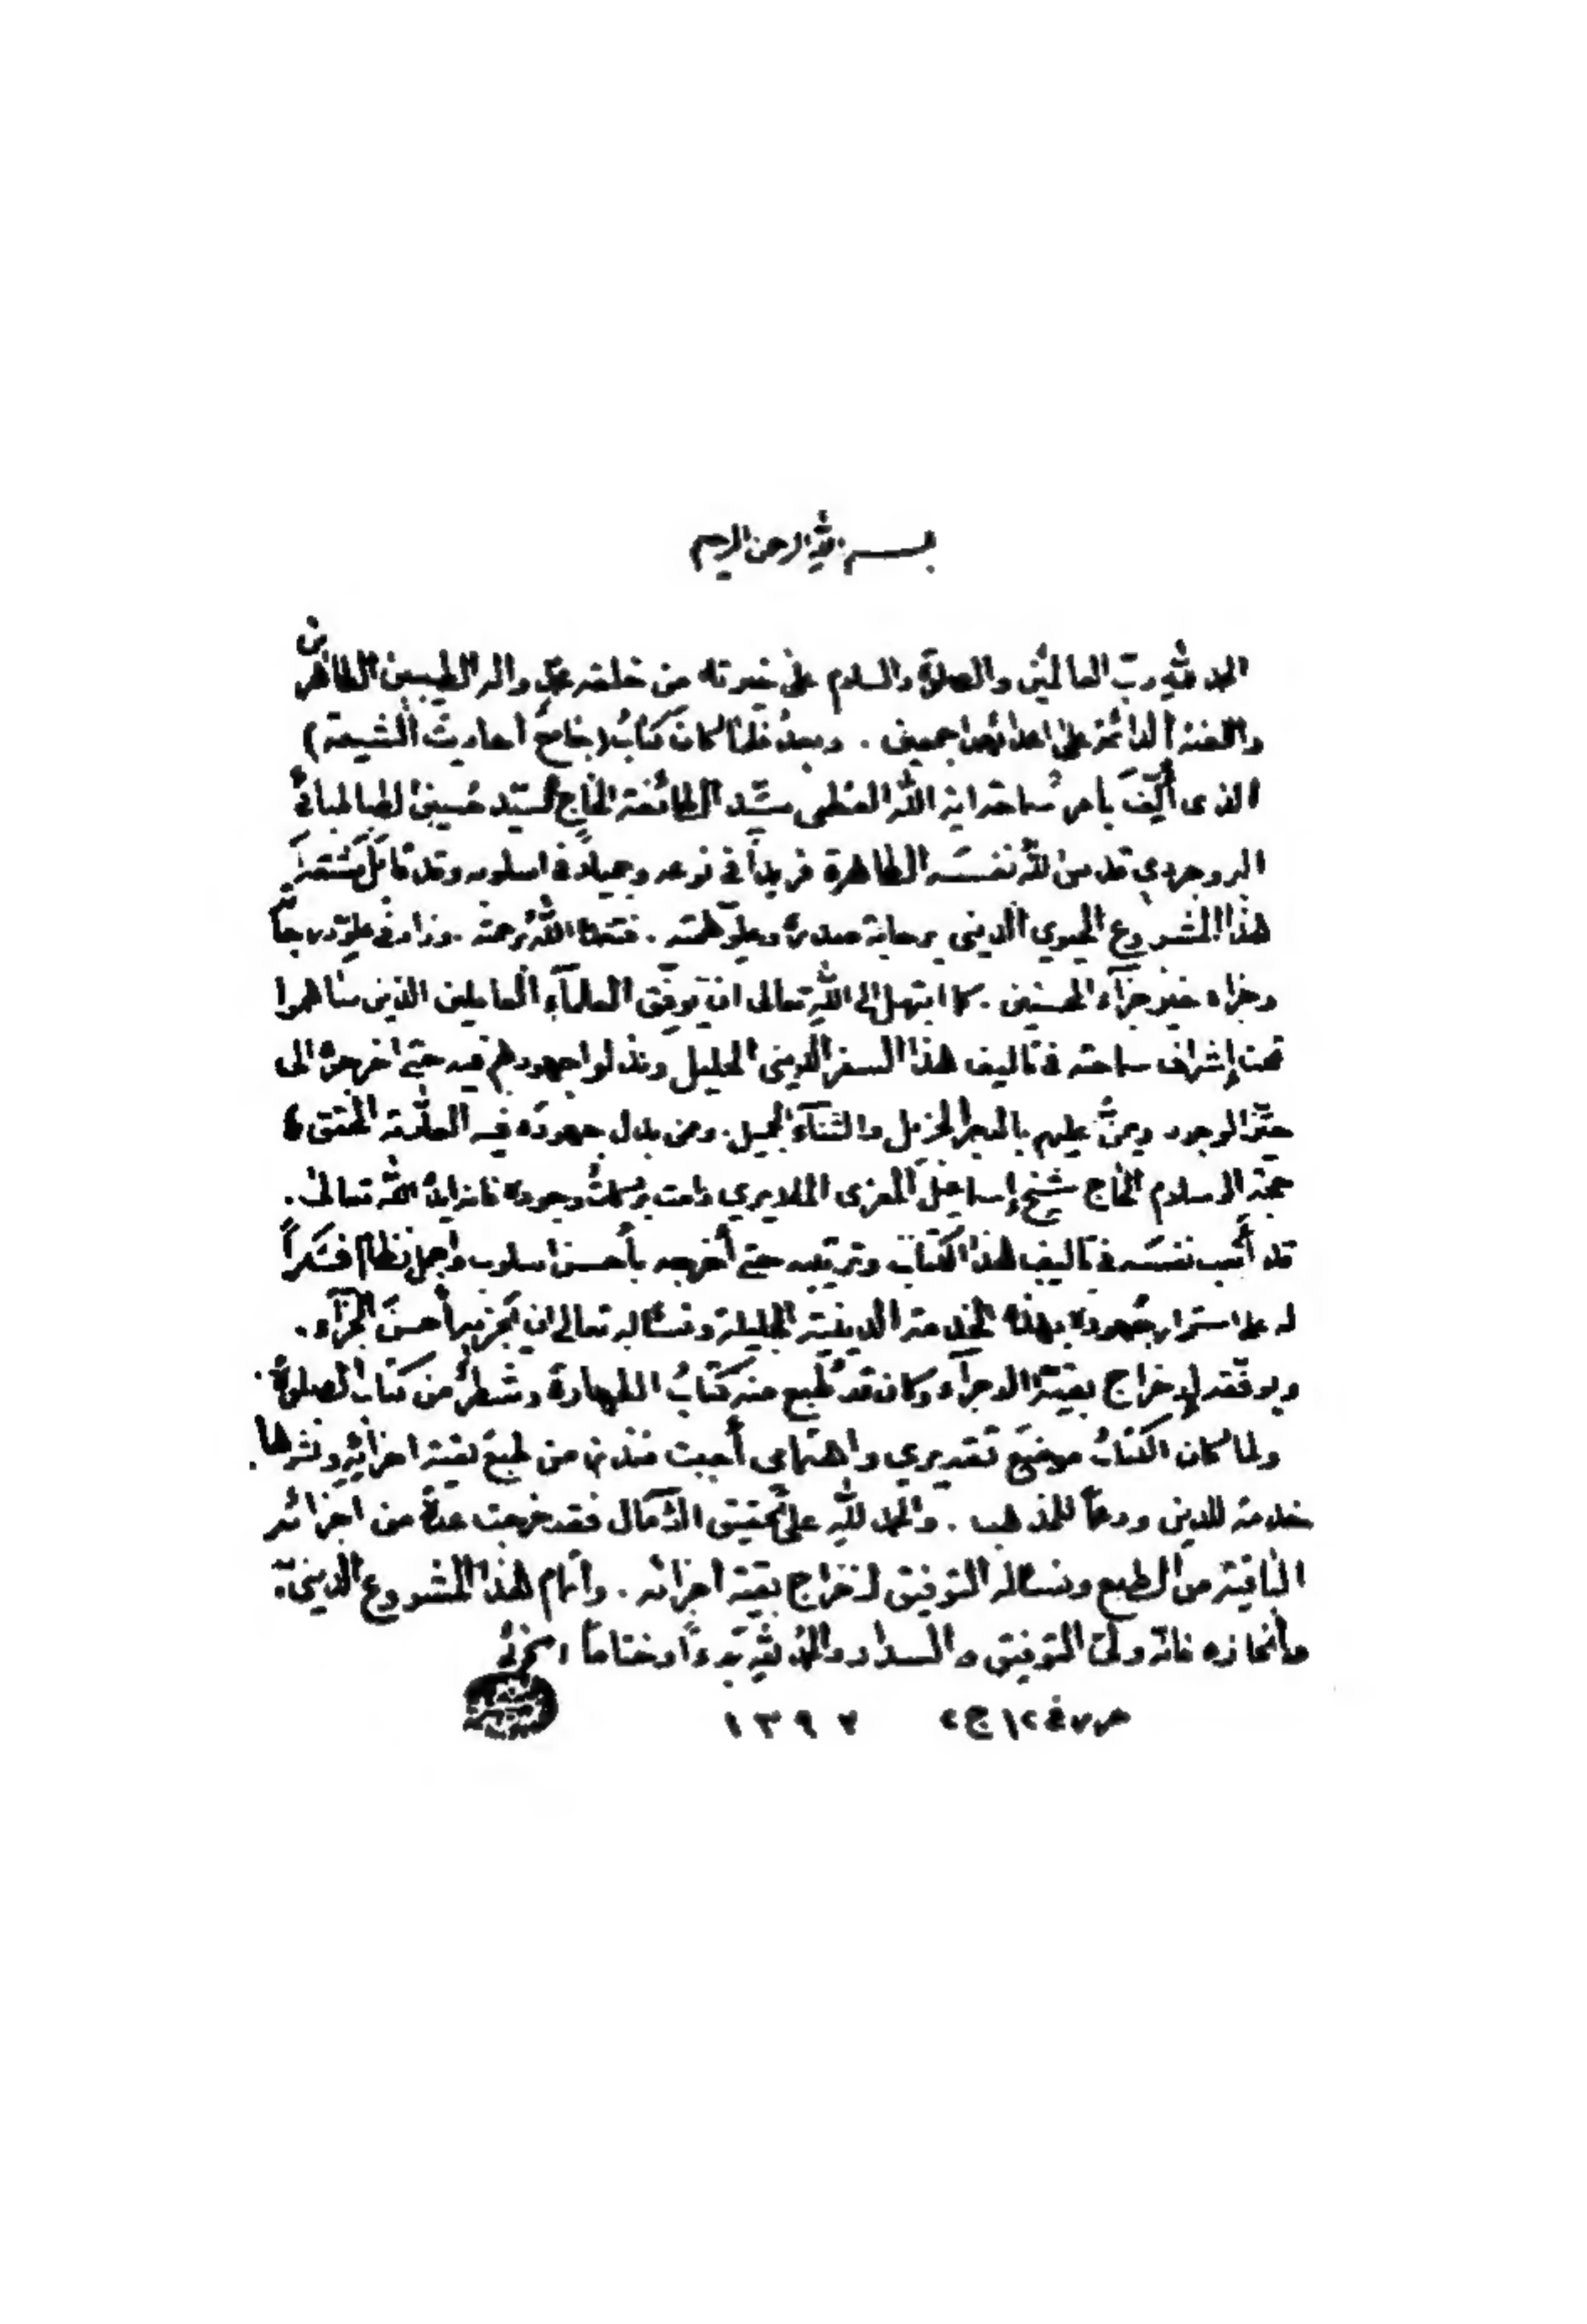 بسم الله الرحمن الرحيم
الحمد لله ربّ العالمين والصلاة والسلام على خيرته من خلقه محمد واله الطيبين الطاهرين
واللعنة الدائمة على اعدائهم اجمعين . وبعدُ فلمّا كان كتابُ (جامعُ أحاديث الشيعة)
الذى أُلِّفَ بأمر سُماحة اية اللهِ العظمى سيّد الطائفة الحاج السيّد حُسين الطباطبائى
البروجردي قدس اللهُ نفسَه الطاهرة فريداً في نوعه وجميلاً في اسلوبه وقد
هذا المشروع الحيوي الديني برحابة صدره وعلوّ همّته . فتغمده اللهُ برحمته . وزاد في علوّ درجاته
وجزاه خير جزآء المحسنين . كما ابتهل الى اللهِ تعالى ان يوفّق العلمآء العاملين الذين ساهموا
تحت إشراف سماحته في تأليف هذا السفر الديني الجليل وبذلوا جهودهم فيه حتى اخرجوه الى
حيّز الوجود ويمنَّ عليهم بالاجر الجزيل والثنآء الجميل . وممن بذل جهودَه فيه العلّامة المحقق
حجة الاسلام الحاج شيخ إسماعيل المعزى الملايري دامت بركاتُ وجوده فانه ايدهُ الله تعالى .
قد أتعب نفسَه في تأليف هذا الكتاب وترتيبه حتى أخرجه بأحسن اسلوب واجمل نظام فشكراً
له على استمرار جُهوده بهذه الخدمة الدينيّة الجليلة ونسأله تعالى ان يَجزيه أحسنَ الجزآء .
ويوفّقه لإخراج بقيّة الاجزآء وكان قد طُبع منه كتابُ الطهارة وشطرٌ من كتاب الصلوة .
ولما كان الكتابُ موضعَ تقديري واهتمامى أحببت من طبع بقية اجزائِه ونشرها .
خدمة للدين ودعماً للمذهب . والحمد للّهِ على تحقيق الآمال فقد خرجت عدةٌ من اجزائه
الباقية من الطبع ونسأله التوفيق لاخراج بقية اجزائه . واتمام هذا المشروع الديني
وانجازه فانه ولىّ التوفيق والسداد والحمد للهِ بدءاً وختاماً الخوئى
١٢ ج ٢ ١٣٩٧